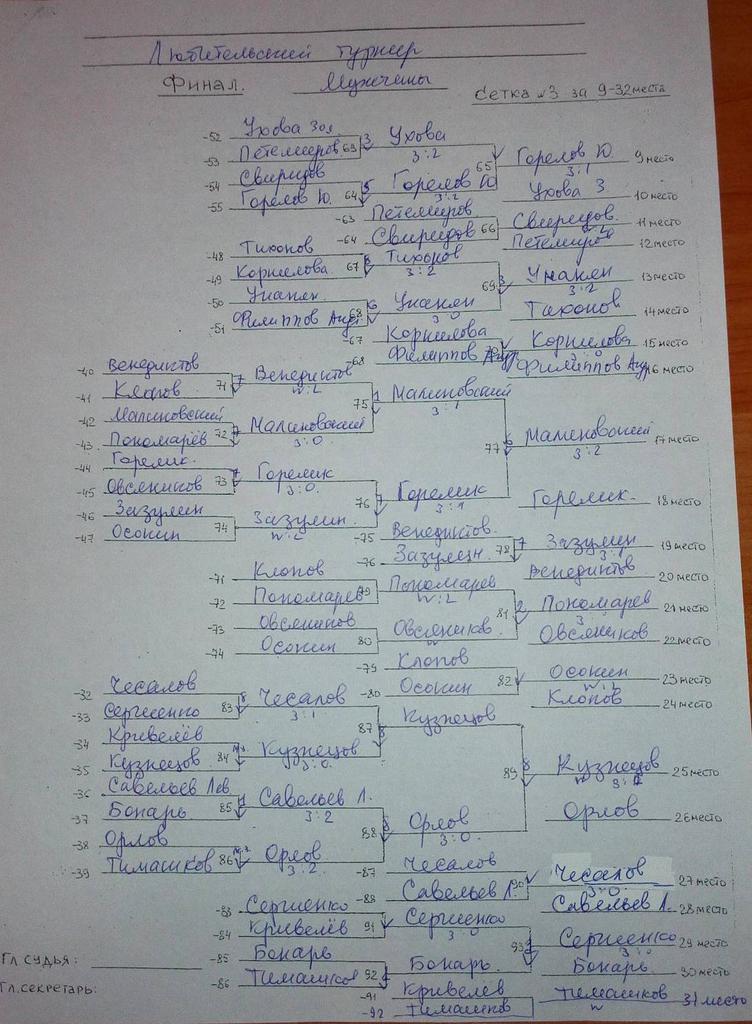 Любительский турнир
Финал. Мужчины
Сетка №3 за 9-32 места
-52 Ухова Зоя 3 Ухова
-53 Петемиров 63 3:2 65 Горелов Ю. 9 место
-54 Свиридов 3:1
-55 Горелов Ю. 64 5 Горелов Ю 3:2 Ухова З 10 место
-63 Петемиров Свиридов. 11 место
-64 Свиридов 66 Петемиров 12 место
-48 Тихонов Тихонов
-49 Корнилова 67 3:2 69 3 Унанян 13 место
-50 Унанян 3:2
-51 Филиппов Анд 68 6 Унанян 3:0 Тихонов 14 место
-67 Корнилова Корнилова 15 место
-68 Филиппов Филиппов 16 место
-40 Венедиктов
-41 Клопов 71 7 Венедиктов
w:L 75 1 Малиновский
-42 Малиновский 3:1
-43 Пономарёв 72 Малиновский 3:0
77 6 Малиновский 17 место
3:2
-44 Горелик.
-45 Овсяников 73 7 Горелик 3:0
76 7 Горелик 3:1 Горелик. 18 место
-46 Зазулин
-47 Осокин 74 Зазулин.
-75 Венедиктов
-76 Зазулин 78 7 Зазулин 19 место
Венедиктов 20 место
-71 Клопов
-72 Пономарев 79 Пономарев
81 2 Пономарев 21 место
-73 Овсяников
-74 Осокин 80 Овсяников Овсяников 22 место
-79 Клопов
-80 Осокин 82 Осокин 23 место
Клопов 24 место
-32 Чесалов
-33 Сергиенко 83 8 Чесалов 3:1
87 8 Кузнецов
-34 Кривелёв
-35 Кузнецов 84 Кузнецов 3:0.
89 8 Кузнецов 25 место
-36 Савельев Лев
-37 Бокарь 85 1 Савельев Л. 3:2
88 8 Орлов 3:0. Орлов 26 место
-38 Орлов
-39 Тимашков 86 Орлов 3:2
-87 Чесалов
-88 Савельев Л. 90 Чесалов 3:0. 27 место
Савельев Л. 28 место
-83 Сергиенко
-84 Кривелёв 91 Сергиенко 3:0
93 Сергиенко 29 место
-85 Бокарь
-86 Тимашков 92 Бокарь Бокарь. 30 место
-91 Кривелёв
-92 Тимашков Тимашков 31 место
w
Гл судья:
Гл.секретарь: